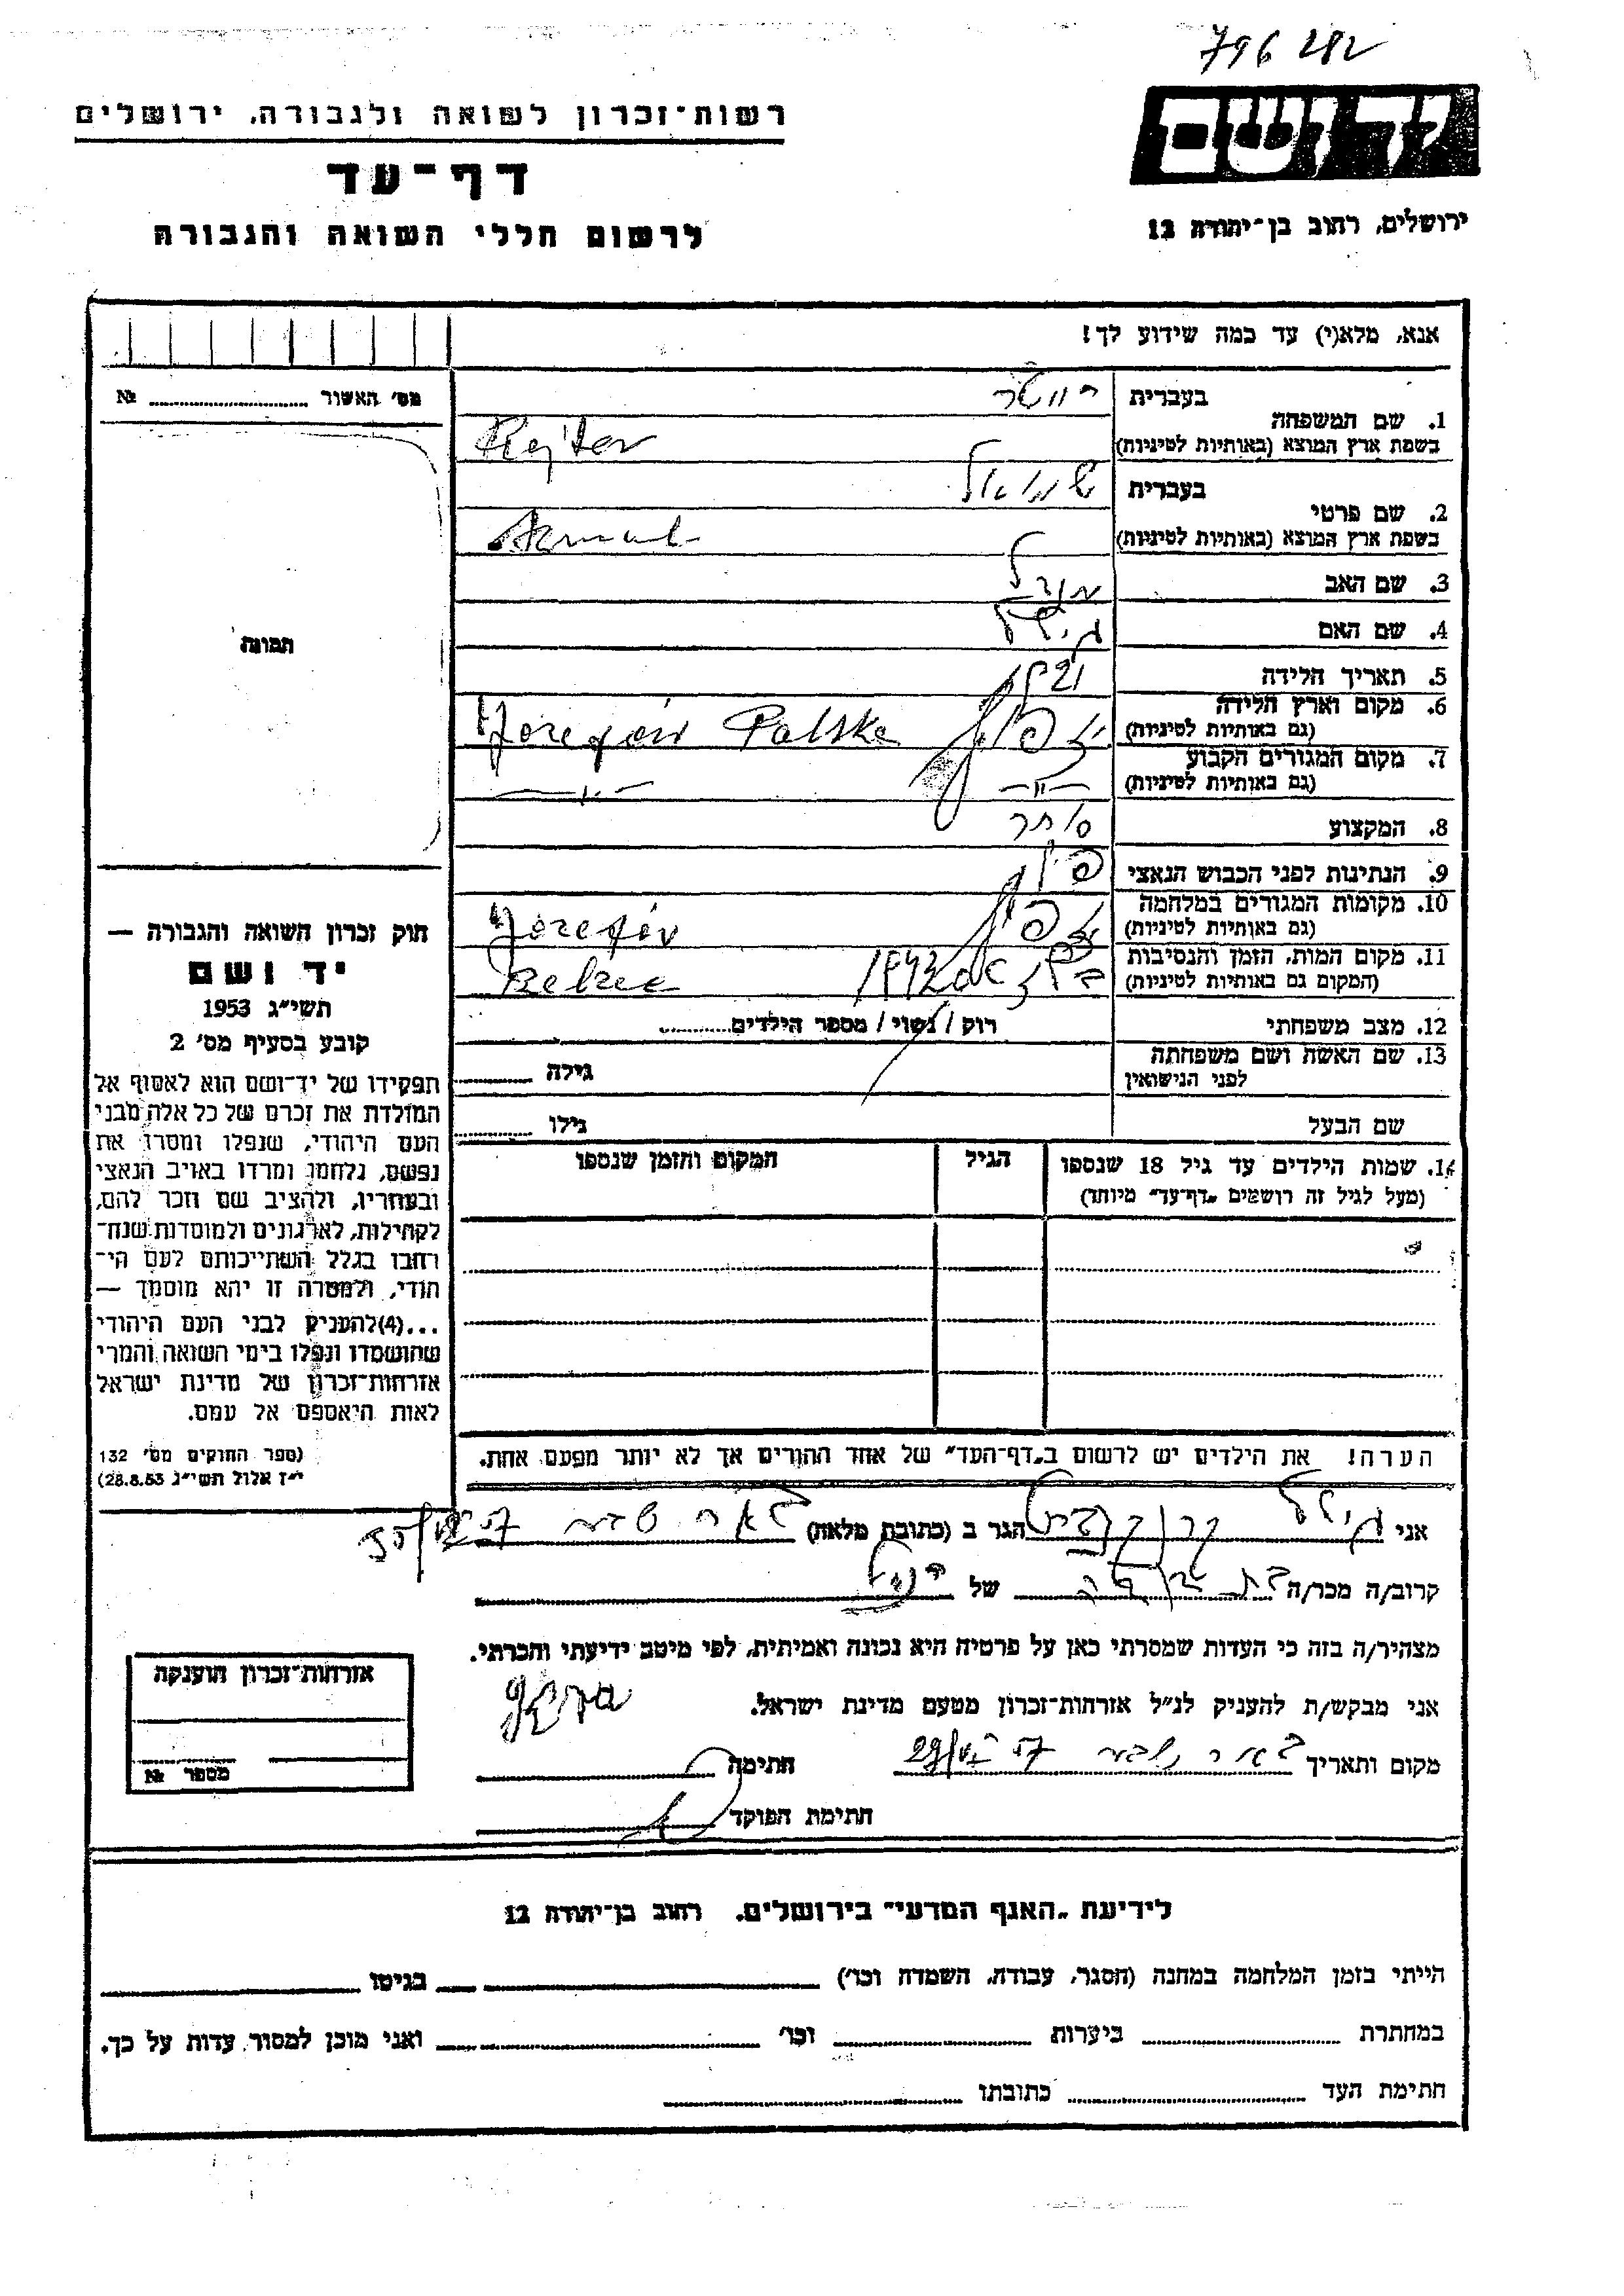 796282
רשות־זכרון לשואה ולגבורה, ירושלים
דף־עד
לרשום חללי השואה והגבורה
ידושם
ירושלים, רחוב בן־יהודה 12
אנא, מלא(י) עד כמה שידוע לך!
מס׳ האשור № 
1. שם המשפחה
בעברית
בשפת ארץ המוצא (באותיות לטיניות) Rejter
2. שם פרטי
בעברית שמואל
בשפת ארץ המוצא (באותיות לטיניות)
3. שם האב
4. שם האם
5. תאריך הלידה
6. מקום וארץ הלידה
(גם באותיות לטיניות) Polska
7. מקום המגורים הקבוע
(גם באותיות לטיניות) —״— —״—
8. המקצוע סוחר
9. הנתינות לפני הכבוש הנאצי
10. מקומות המגורים במלחמה
(גם באותיות לטיניות)
11. מקום המות, הזמן והנסיבות
(המקום גם באותיות לטיניות) Belzec
12. מצב משפחתי רוק / נשוי / מספר הילדים
13. שם האשה ושם משפחתה
לפני הנישואין גילה
שם הבעל גילו
14. שמות הילדים עד גיל 18 שנספו
(מעל לגיל זה רושמים „דף־עד״ מיוחד)
הגיל
המקום והזמן שנספו
הערה! את הילדים יש לרשום ב„דף־העד״ של אחד ההורים אך לא יותר מפעם אחת.
תמונה
חוק זכרון השואה והגבורה —
יד ושם
תשי״ג 1953
קובע בסעיף מס׳ 2
תפקידו של יד־ושם הוא לאסוף אל
המולדת את זכרם של כל אלה מבני
העם היהודי, שנפלו ומסרו את
נפשם, נלחמו ומרדו באויב הנאצי
ובעוזריו, ולהציב שם וזכר להם,
לקהילות, לארגונים ולמוסדות שנח־
רחבו בגלל השתייכותם לעם הי־
הודי, ולמטרה זו יהא מוסמך —
...(4)להעניק לבני העם היהודי
שהושמדו ונפלו בימי השואה והמרי
אזרחות־זכרון של מדינת ישראל
לאות היאספם אל עמם.
(ספר החוקים מס׳ 132
י״ז אלול תשי״ג 28.8.53)
אני הגר ב (כתובת מלאה) באר שבע
קרוב/ה מכר/ה של
מצהיר/ה בזה כי העדות שמסרתי כאן על פרטיה היא נכונה ואמיתית, לפי מיטב ידיעתי והכרתי.
אני מבקש/ת להעניק לנ״ל אזרחות־זכרון מטעם מדינת ישראל.
מקום ותאריך באר שבע חתימה
חתימת הפוקד
אזרחות־זכרון הוענקה
מספר №
לידיעת „האגף המדעי״ בירושלים. רחוב בן־יהודה 12
הייתי בזמן המלחמה במחנה (הסגר, עבודה, השמדה וכו׳) בגיטו
במחתרת ביערות וכו׳ ואני מוכן למסור עדות על כך.
חתימת העד כתובתו